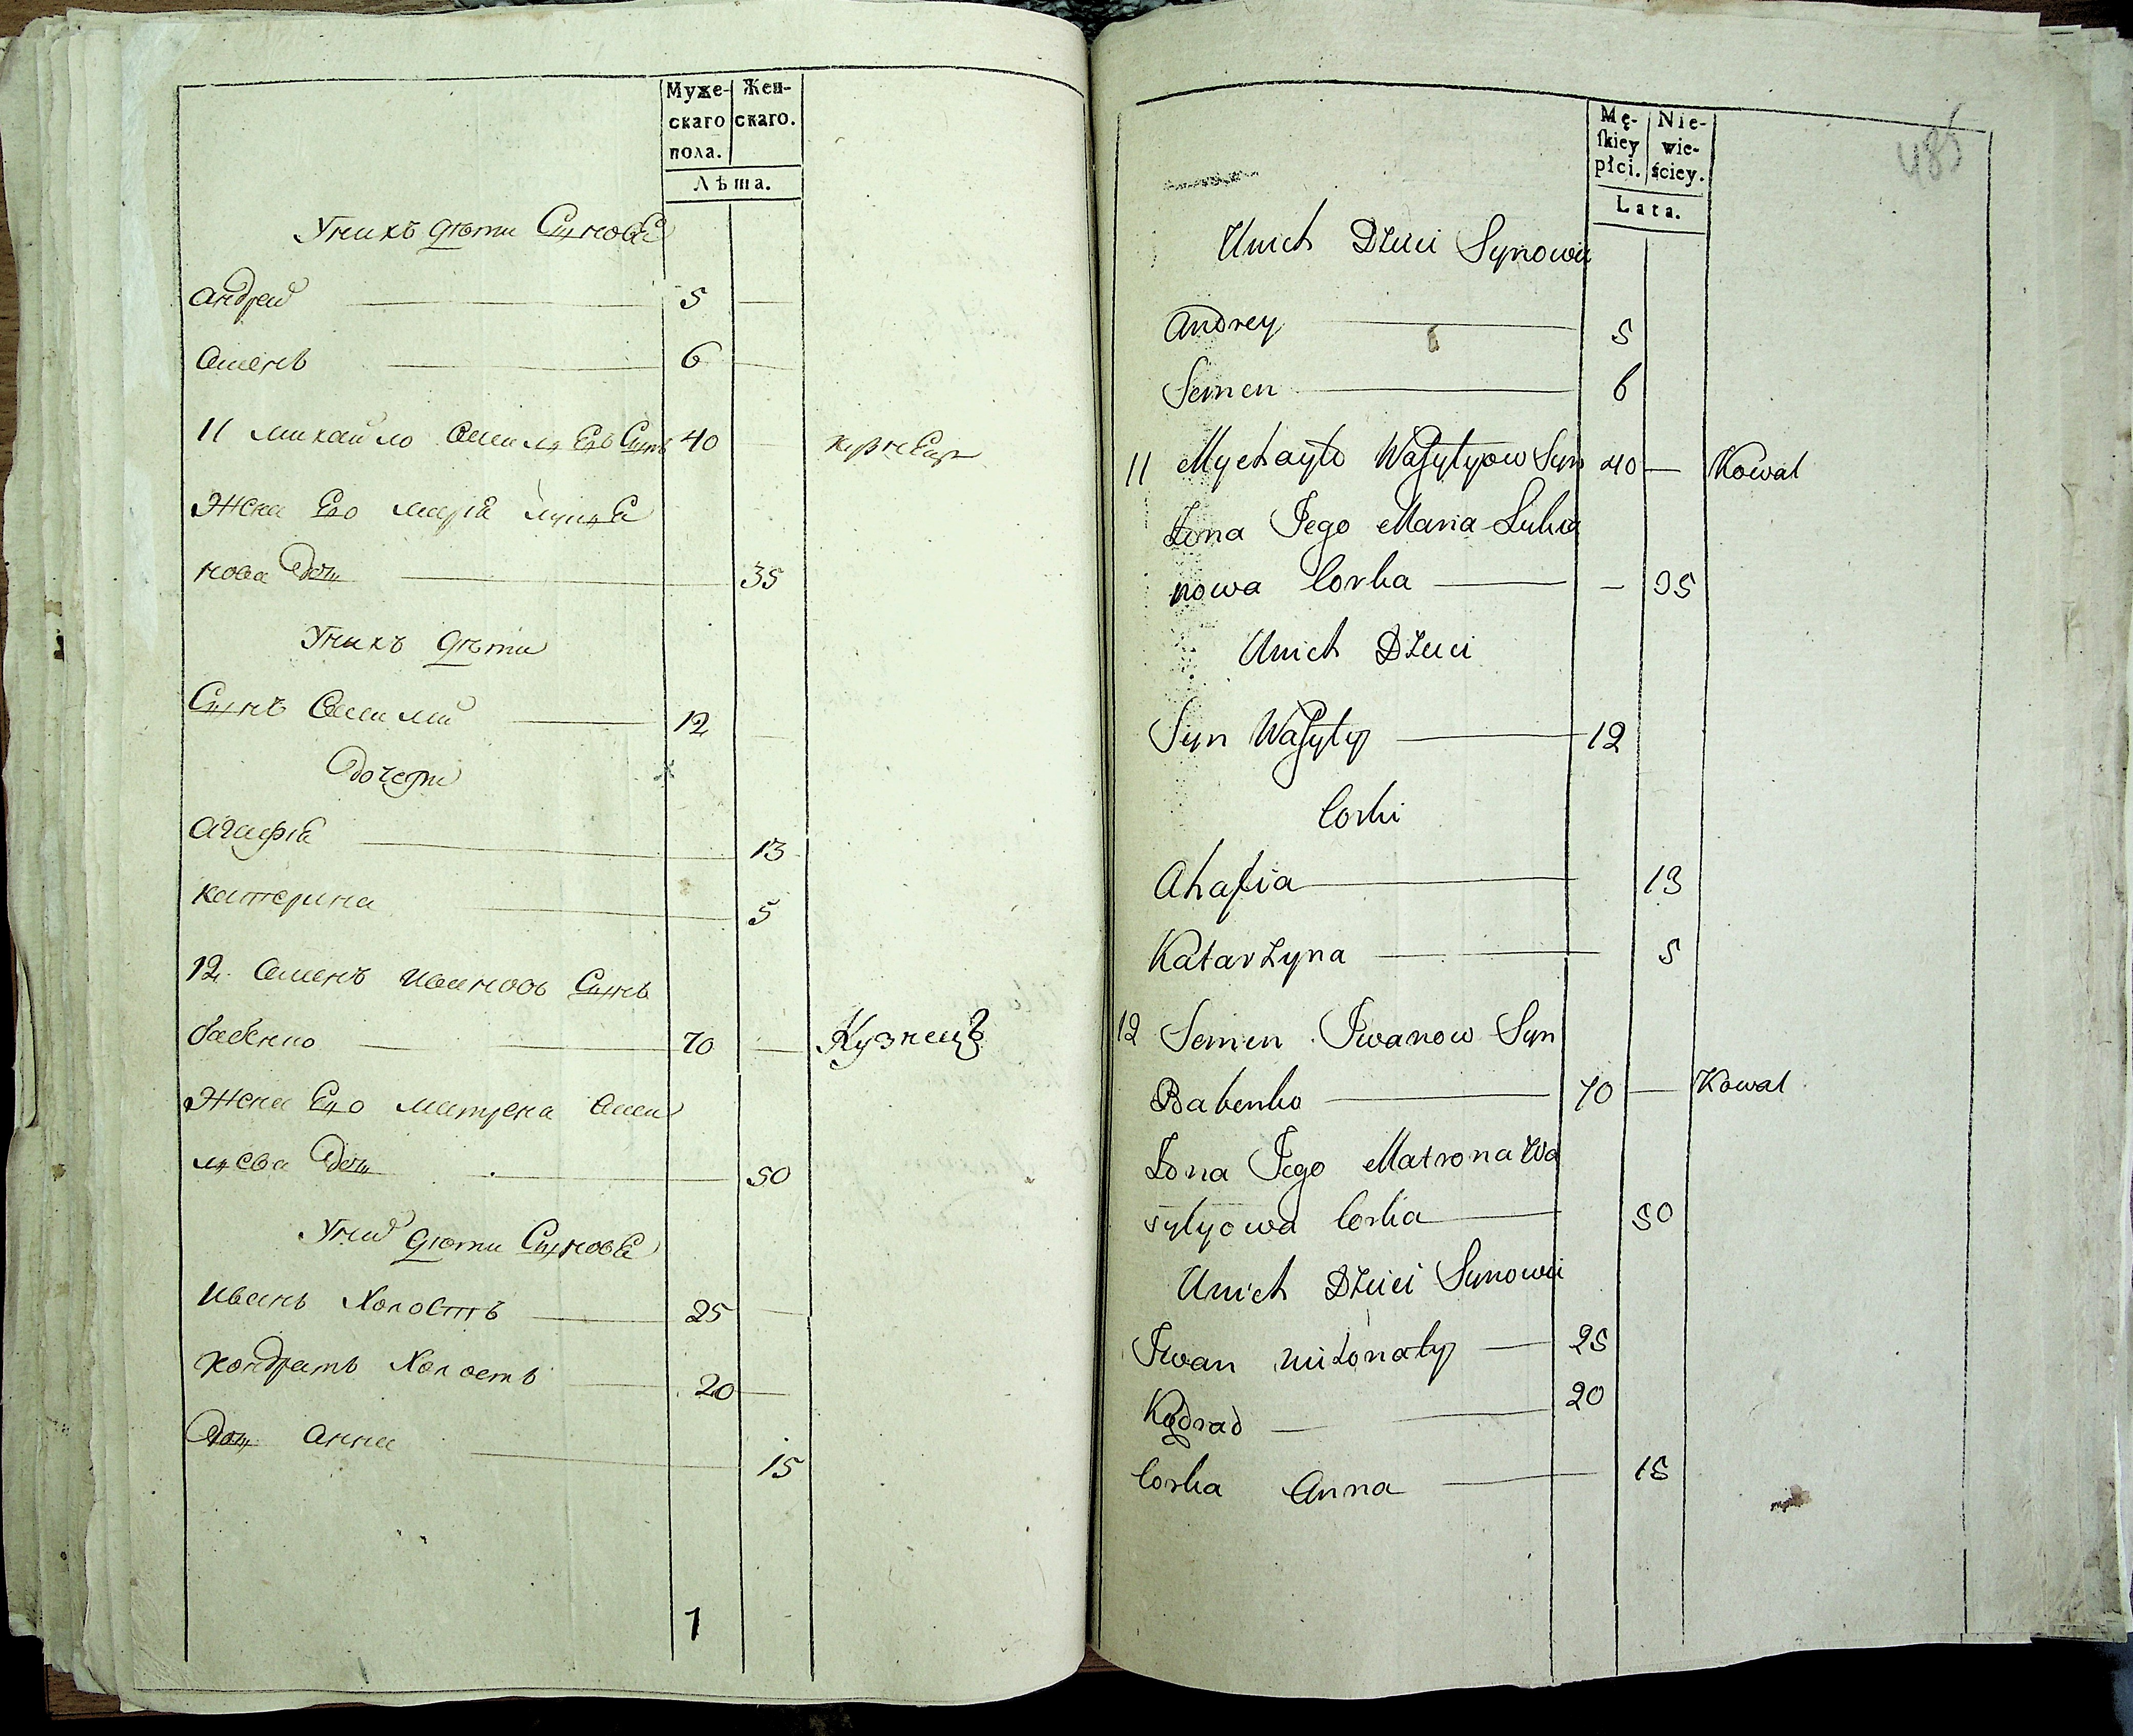 Муже-
скаго
пола.
Жен-
скаго.
Лѣта.
Унихъ дѣти Синове
Андрей 5
Семенъ 6
11 Михайло Синъ 40
Жена Его Марія
нова дочь 35
Унихъ дѣти
Синъ Василий 12
Дочери
Агафія 13
Катерина 5
12. Семенъ Ивановъ Синъ
Бабенко 70 Кузнецъ
Жена Его Матрена Васи
лиева дочь 50
Уних дѣти Синове
Иванъ Холостъ 25
Кондратъ Холостъ 20
Дочь Анна 15
1
Mę-
skiey
płci.
Nie-
wie-
ściey.
Lata.
485
Unich Dzieci Synowie
Andrey 5
Semen 6
11 Mychayło Wasylyow Syn 40 Kowal
Żona Jego Maria Lukia
nowa Corka 35
Unich Dzieci
Syn Wasyly 12
Corki
Ahafia 13
Katarzyna 5
12 Semen Iwanow Syn
Babenko 70 Kowal
Żona Jego Matrona Wa
sylyowa Corka 50
Unich Dzieci Synowie
Iwan nieżonaty 25
Kądrad 20
Corka Anna 15